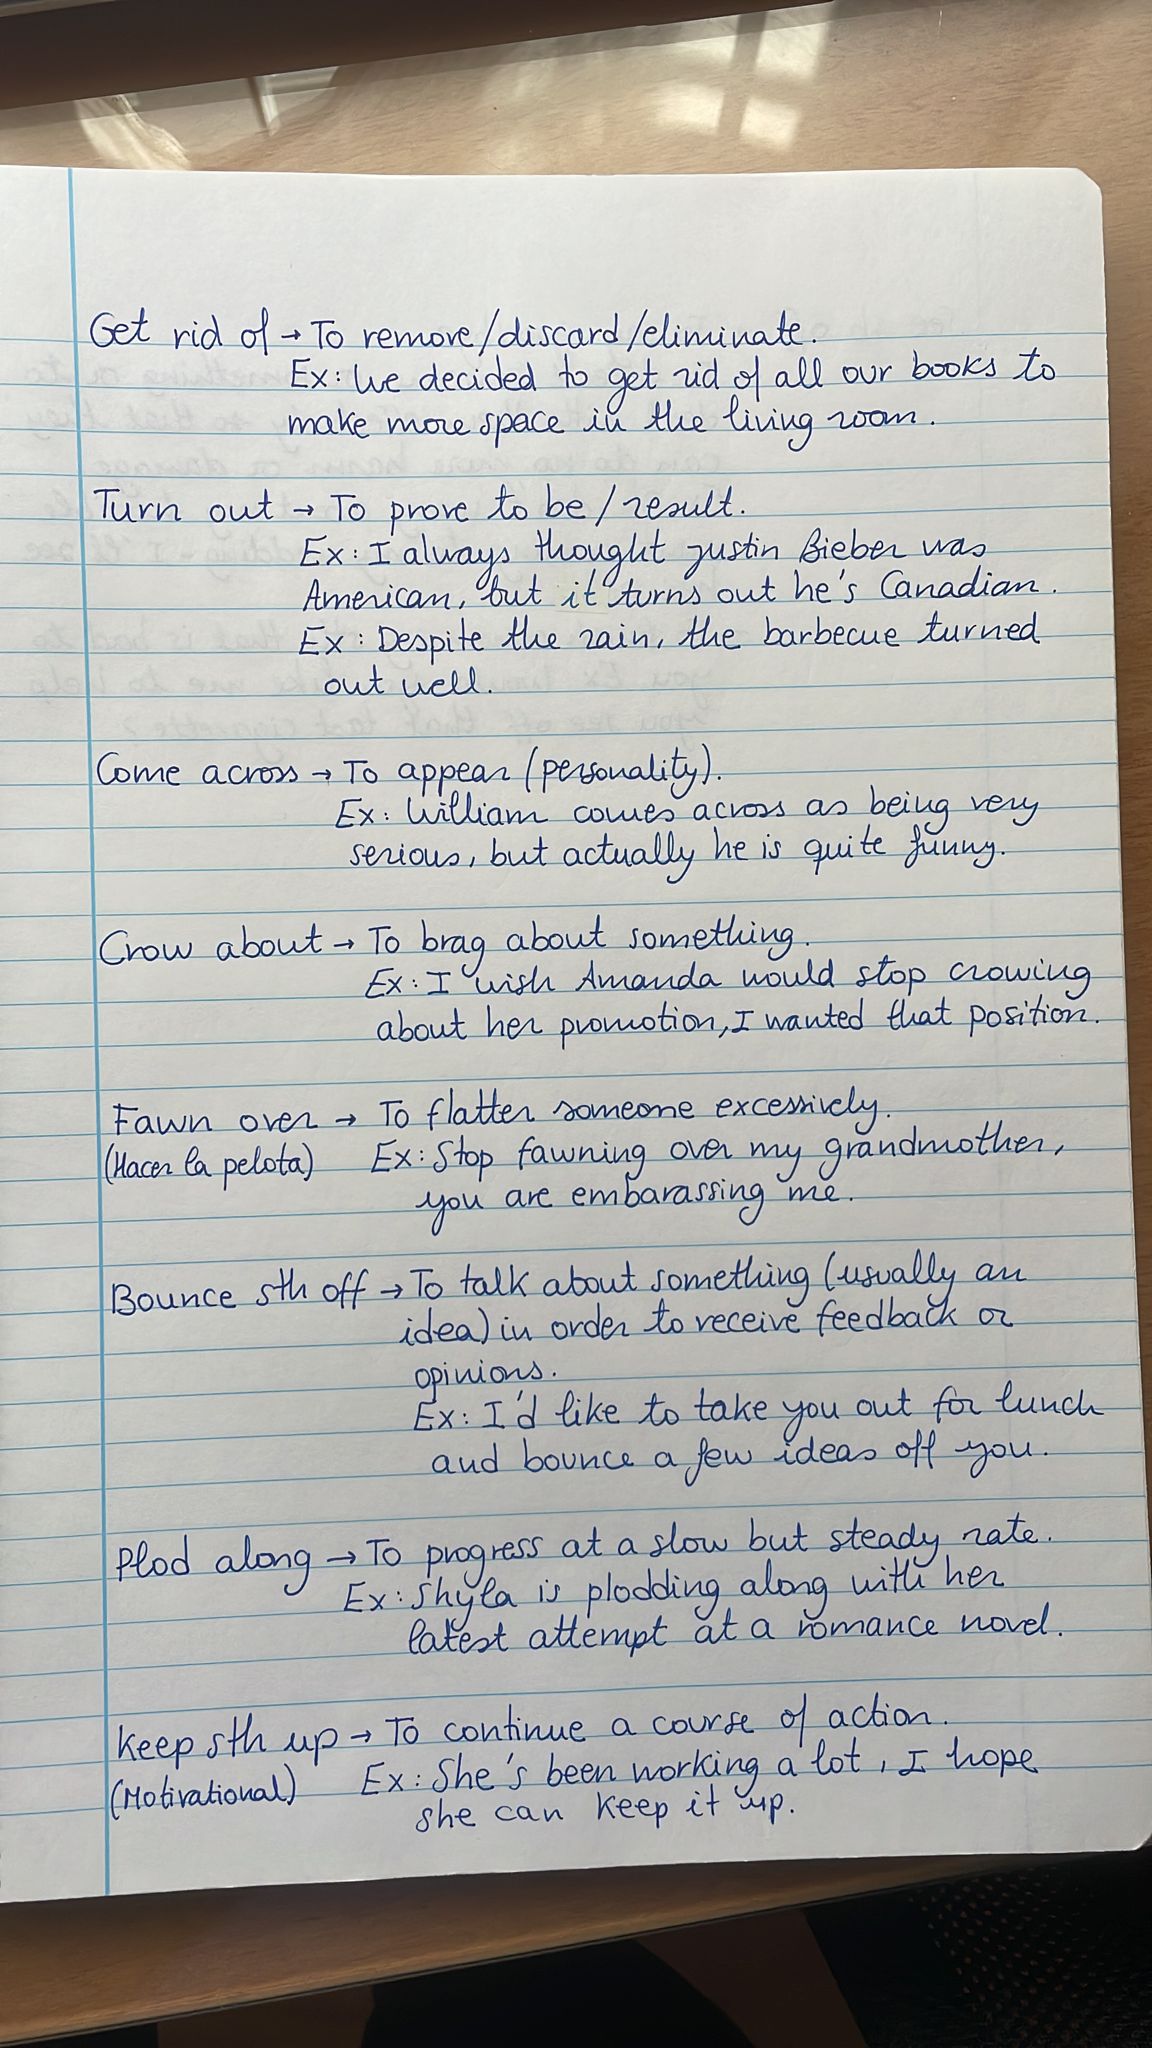 Get rid of → To remove/discard/eliminate.
Ex: We decided to get rid of all our books to
make more space in the living room.
Turn out → To prove to be/result.
Ex: I always thought Justin Bieber was
American, but it turns out he's Canadian.
Ex: Despite the rain, the barbecue turned
out well.
Come across → To appear (personality).
Ex: William comes across as being very
serious, but actually he is quite funny.
Crow about → To brag about something.
Ex: I wish Amanda would stop crowing
about her promotion, I wanted that position.
Fawn over → To flatter someone excessively.
(Hacer la pelota) Ex: Stop fawning over my grandmother,
you are embarassing me.
Bounce sth off → To talk about something (usually an
idea) in order to receive feedback or
opinions.
Ex: I'd like to take you out for lunch
and bounce a few ideas off you.
Plod along → To progress at a slow but steady rate.
Ex: Shyla is plodding along with her
latest attempt at a romance novel.
Keep sth up → To continue a course of action.
(Motivational) Ex: She's been working a lot, I hope
she can keep it up.